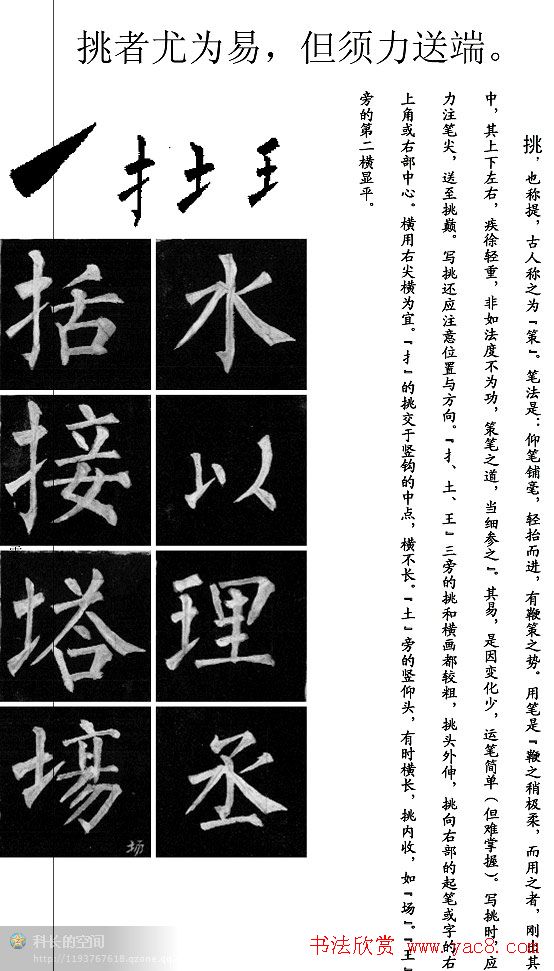 挑者尤为易，但须力送端。
挑，也称提，古人称之为『策』。笔法是：仰笔铺毫，轻抬而进，有鞭策之势。用笔是『鞭之稍极柔，而用之者，刚由其
中，其上下左右，疾徐轻重，非如法度不为功，策笔之道，当细参之』。其易，是因变化少，运笔简单（但难掌握）。写挑时，应
力注笔尖，送至挑巅。写挑还应注意位置与方向。『扌、土、王』三旁的挑和横画都较粗，挑头外伸，挑向右部的起笔或字的右
上角或右部中心。横用右尖横为宜。『扌』的挑交于竖钩的中点，横不长。『土』旁的竖仰头，有时横长，挑内收，如『场』。『王』
旁的第二横显平。
扌土王
水以理丞
括接塔場
场
科长的空间
http://1193767618.qzone.qq
书法欣赏 www.yac8.com